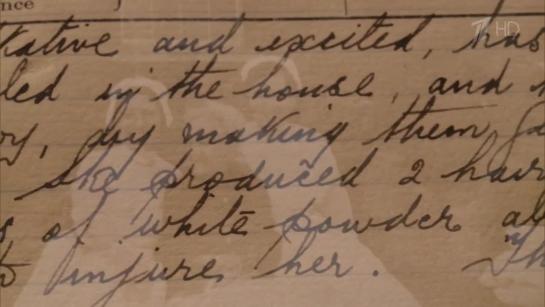 nce
1 HD
tative and excited, has
led in the house, and
ry, by making them
She produced 2 hair
s of white powder al
to injure her. Th